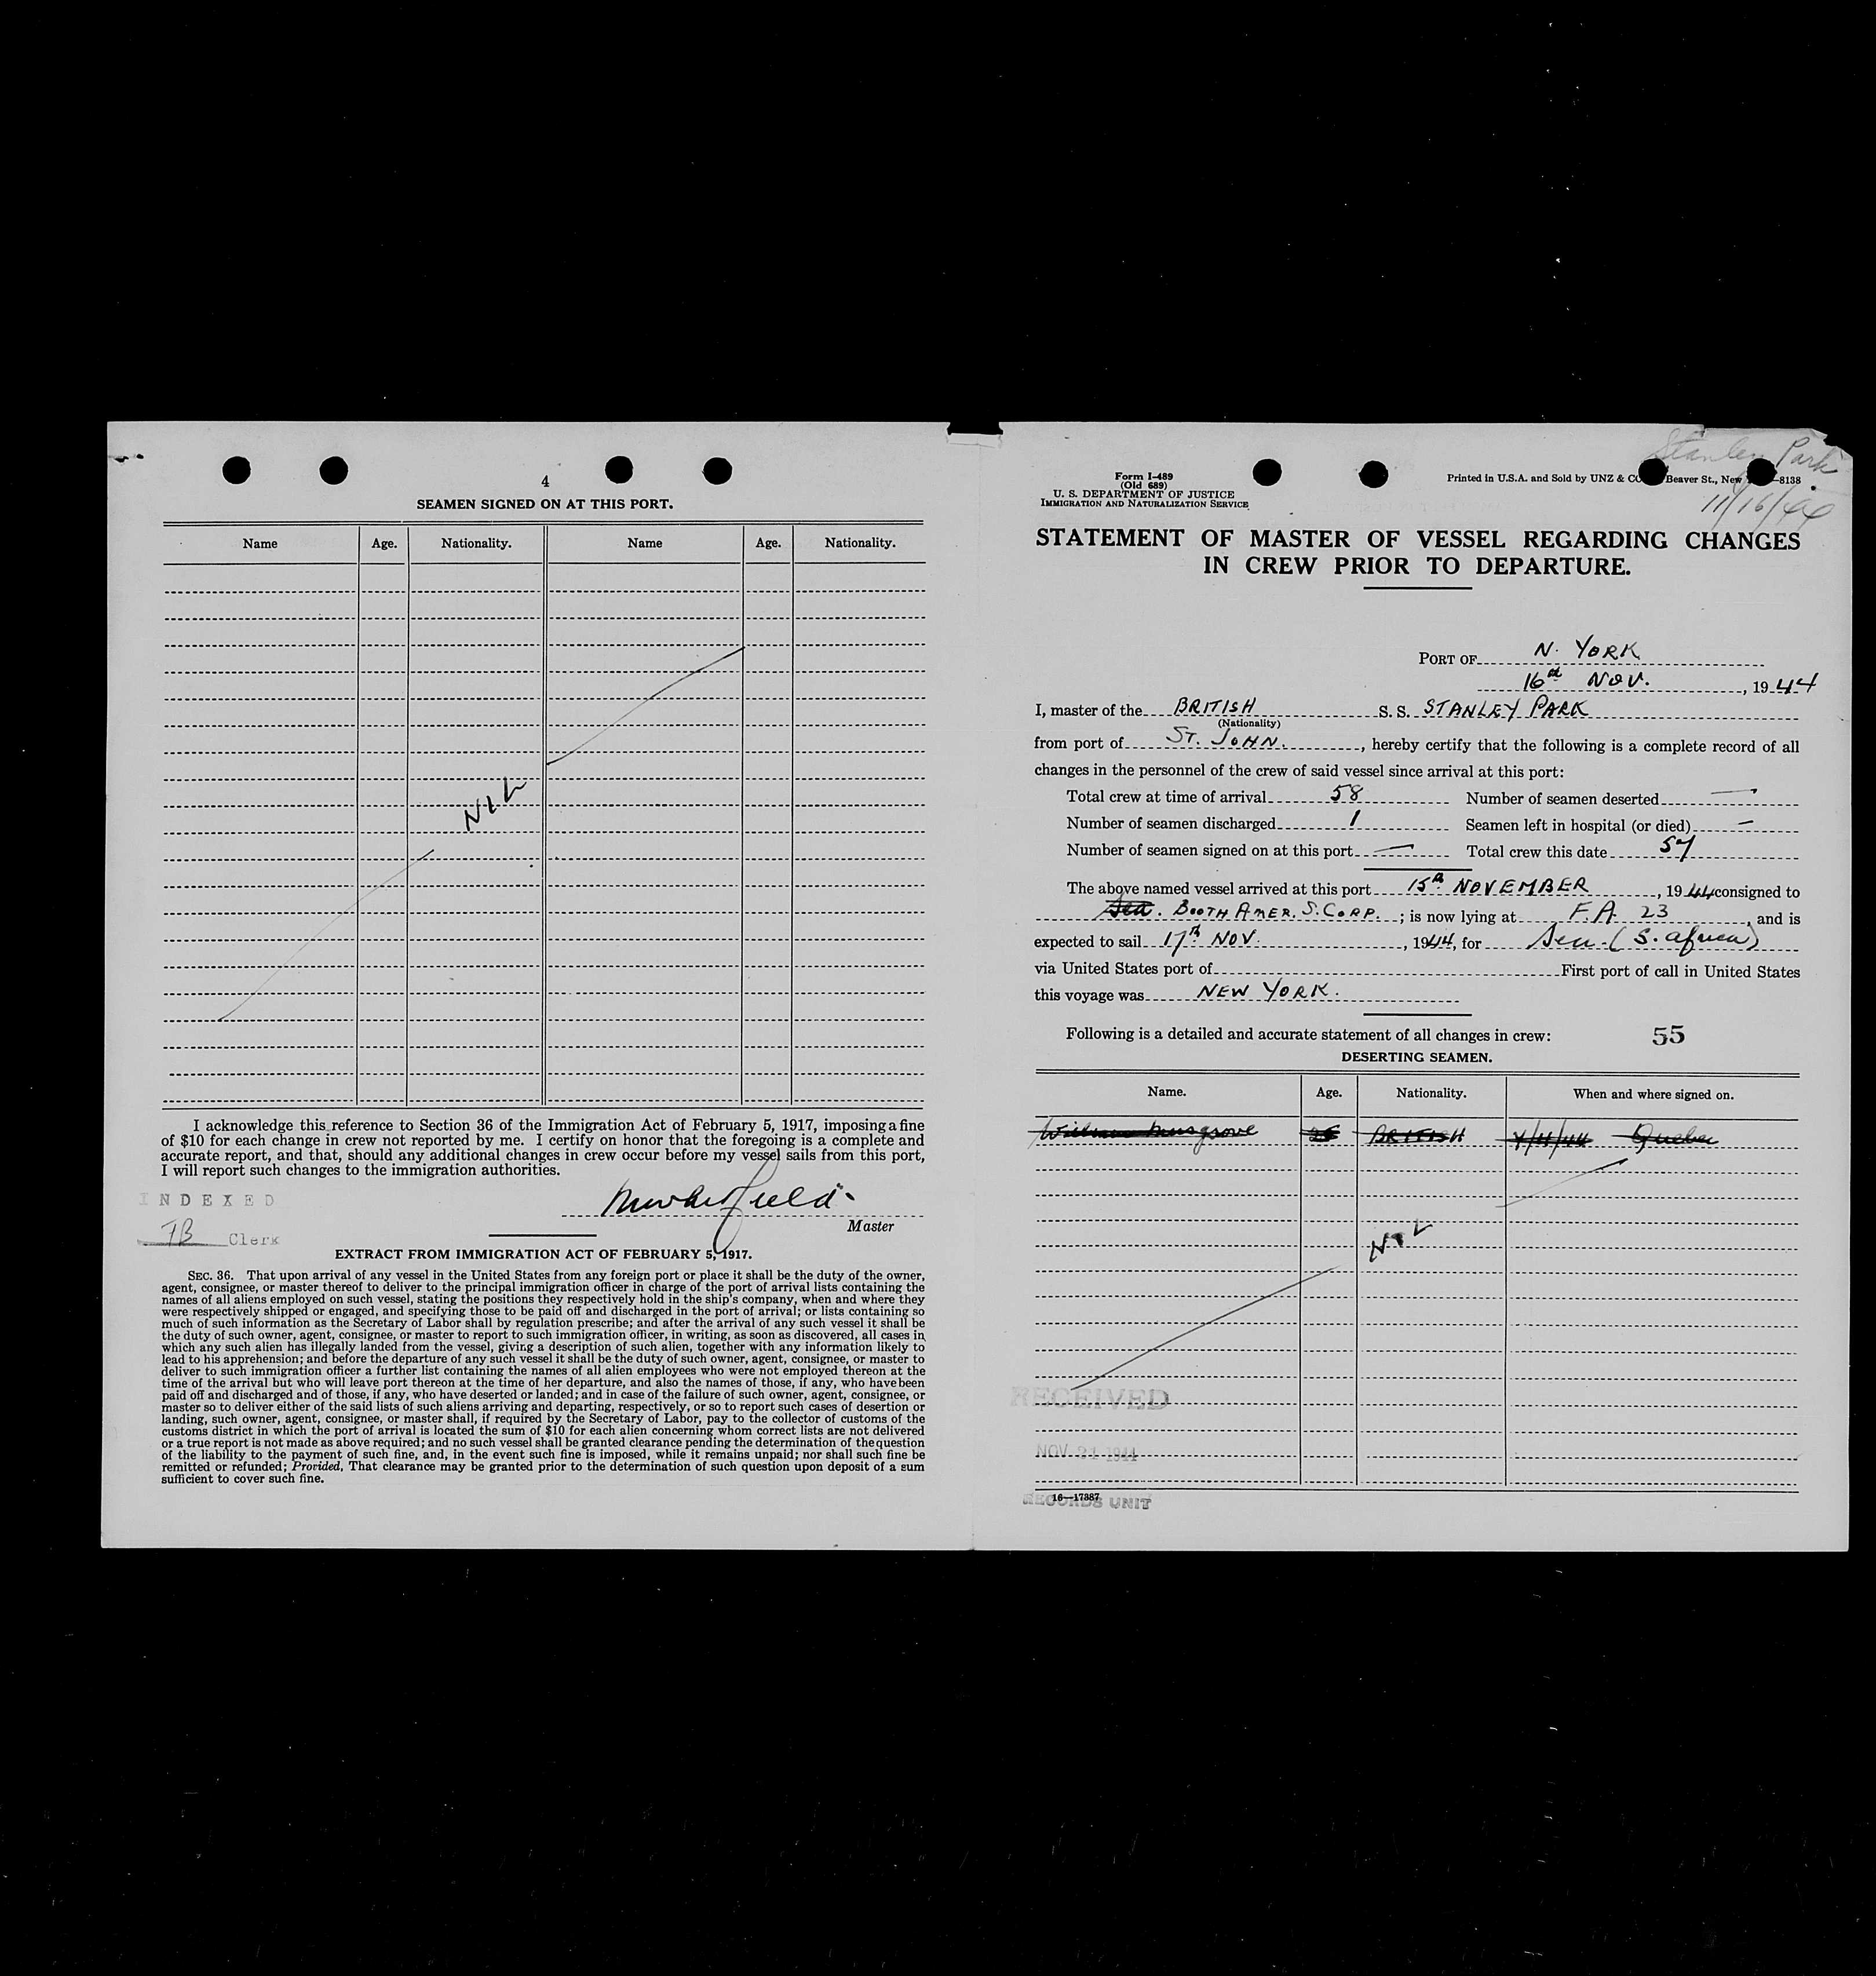 4
SEAMEN SIGNED ON AT THIS PORT.
Name Age. Nationality. Name Age. Nationality.
NIL
I acknowledge this reference to Section 36 of the Immigration Act of February 5, 1917, imposing a fine
of $10 for each change in crew not reported by me. I certify on honor that the foregoing is a complete and
accurate report, and that, should any additional changes in crew occur before my vessel sails from this port,
I will report such changes to the immigration authorities.
INDEXED
Master
TB Clerk
EXTRACT FROM IMMIGRATION ACT OF FEBRUARY 5, 1917.
SEC. 36. That upon arrival of any vessel in the United States from any foreign port or place it shall be the duty of the owner,
agent, consignee, or master thereof to deliver to the principal immigration officer in charge of the port of arrival lists containing the
names of all aliens employed on such vessel, stating the positions they respectively hold in the ship's company, when and where they
were respectively shipped or engaged, and specifying those to be paid off and discharged in the port of arrival; or lists containing so
much of such information as the Secretary of Labor shall by regulation prescribe; and after the arrival of any such vessel it shall be
the duty of such owner, agent, consignee, or master to report to such immigration officer, in writing, as soon as discovered, all cases in
which any such alien has illegally landed from the vessel, giving a description of such alien, together with any information likely to
lead to his apprehension; and before the departure of any such vessel it shall be the duty of such owner, agent, consignee, or master to
deliver to such immigration officer a further list containing the names of all alien employees who were not employed thereon at the
time of the arrival but who will leave port thereon at the time of her departure, and also the names of those, if any, who have been
paid off and discharged and of those, if any, who have deserted or landed; and in case of the failure of such owner, agent, consignee, or
master so to deliver either of the said lists of such aliens arriving and departing, respectively, or so to report such cases of desertion or
landing, such owner, agent, consignee, or master shall, if required by the Secretary of Labor, pay to the collector of customs of the
customs district in which the port of arrival is located the sum of $10 for each alien concerning whom correct lists are not delivered
or a true report is not made as above required; and no such vessel shall be granted clearance pending the determination of the question
of the liability to the payment of such fine, and, in the event such fine is imposed, while it remains unpaid; nor shall such fine be
remitted or refunded; Provided, That clearance may be granted prior to the determination of such question upon deposit of a sum
sufficient to cover such fine.
Stanley Park
11/16/44
Form I-489
(Old 689)
U. S. DEPARTMENT OF JUSTICE
IMMIGRATION AND NATURALIZATION SERVICE
Printed in U.S.A. and Sold by UNZ & CO Beaver St., New 8138
STATEMENT OF MASTER OF VESSEL REGARDING CHANGES
IN CREW PRIOR TO DEPARTURE.
PORT OF N. YORK
16th NOV. , 1944
I, master of the BRITISH S. S. STANLEY PARK
(Nationality)
from port of ST. JOHN. , hereby certify that the following is a complete record of all
changes in the personnel of the crew of said vessel since arrival at this port:
Total crew at time of arrival 58 Number of seamen deserted —
Number of seamen discharged 1 Seamen left in hospital (or died) —
Number of seamen signed on at this port — Total crew this date 57
The above named vessel arrived at this port 15th NOVEMBER , 1944 consigned to
BOOTH AMER. S. CORP. ; is now lying at F.A. 23 , and is
expected to sail 17th NOV. , 1944, for Sea. (S. Africa)
via United States port of First port of call in United States
this voyage was NEW YORK.
Following is a detailed and accurate statement of all changes in crew: 55
DESERTING SEAMEN.
Name. Age. Nationality. When and where signed on.
William Musgrove BRITISH Quebec
NIL
RECEIVED
NOV 21 1944
16—17387
RECORDS UNIT